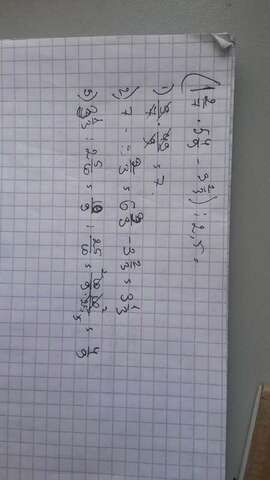 (1 2/7 · 5 4/9 - 3 2/3) : 2,5 =
1) 9/7 · 49/9 = 7
2) 7 - 3 2/3 = 6 3/3 - 3 2/3 = 3 1/3
3) 3 1/3 : 25/10 = 10/3 : 25/10 =